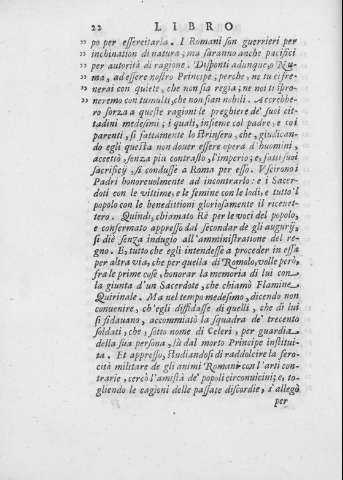 22 LIBRO
" po per essercitarla. I Romani son guerrieri per
" inchination di natura; ma saranno anche pacifici
" per autorità di ragione. Disponti adunque, o Nu-
" ma, ad essere nostro Principe; perche, ne tu ci fre-
" nerai con quiete, che non sia regia; ne noi ti ipro-
" neremo con tumulti, che non sian nobili. Accrebbe-
ro forza a queste ragioni le preghiere de' suoi cit-
tadini medesimi; i quali, insieme col padre, e coi
parenti, sì fattamente lo strinsero, che, giudican-
do egli questa non douer essere opera d'huomini,
accettò, senza piu contrasto, l'imperio; e, fatti suoi
sacrificij, si condusse a Roma per esso. Vscirono i
Padri honoreuolmente ad incontrarlo: e i Sacer-
doti con le vittime, e le femine con le lodi, e tutto 'l
popolo con le benedittioni gloriosamente il riceuet-
tero. Quindi, chiamato Rè per le voci del popolo,
e confermato appresso dal secondar de gli augurij,
si diè senza indugio all'amministratione del re-
gno. E, tutto che egli intendesse a proceder in essa
per altra via, che per quella di Romolo, volle però,
fra le prime cose, honorar la memoria di lui con
la giunta d'un Sacerdote, che chiamò Flamine
Quirinale. Ma nel tempo medesimo, dicendo non
conuenire, ch'egli diffidasse di quelli, che di lui
si fidauano, accommiatò la squadra de' trecento
soldati, che, sotto nome di Celeri, per guardia
della sua persona, fù dal morto Principe instituì-
ta. Et appresso, studiandosi di raddolcire la fero-
cità militare de gli animi Romani con l'arti con-
trarie, cercò l'amistà de' popoli circonuicini; e, to-
gliendo le cagioni delle passate discordie, s'allegò
per